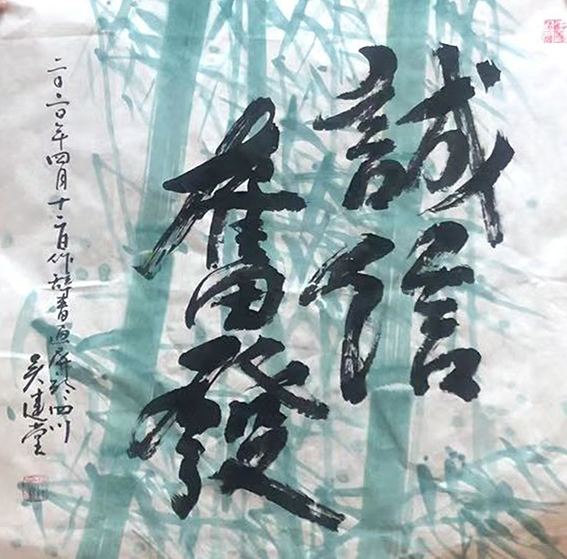 誠信
奮發
二〇二〇年四月十二日作辞春画屏於四川
吴建堂